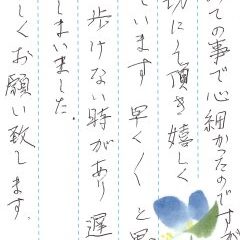 めての事で心細かったのですが
切にて頂き嬉しく
います 早く〳〵と思
歩けない時があり 遅
しまいました.
しくお願い致します。